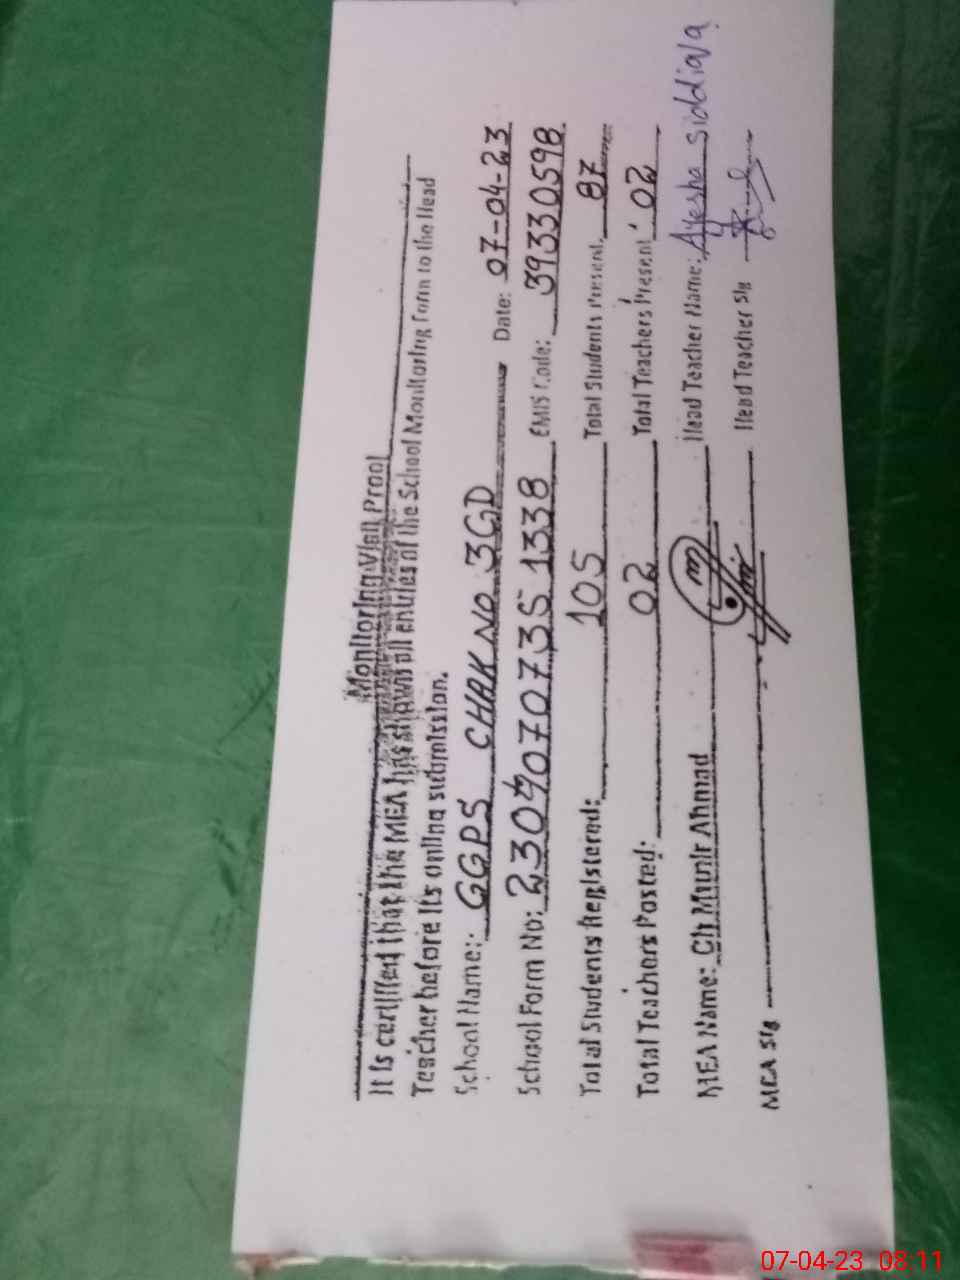 Monitoring Visit Proof
It is certified that the MEA has shown all entries of the School Monitoring Form to the Head
Teacher before its online submission.
School Name: GGPS CHAK NO 3GD Date: 07-04-23
School Form No: 2304070735 1338 EMIS Code: 39330598
Total Students Registered: 105 Total Students Present. 87
Total Teachers Posted: 02 Total Teachers Present 02
MEA Name: Ch Munir Ahmad Head Teacher Name: Ayesha Siddiqa
MEA Sig Head Teacher Sig
07-04-23 08:11